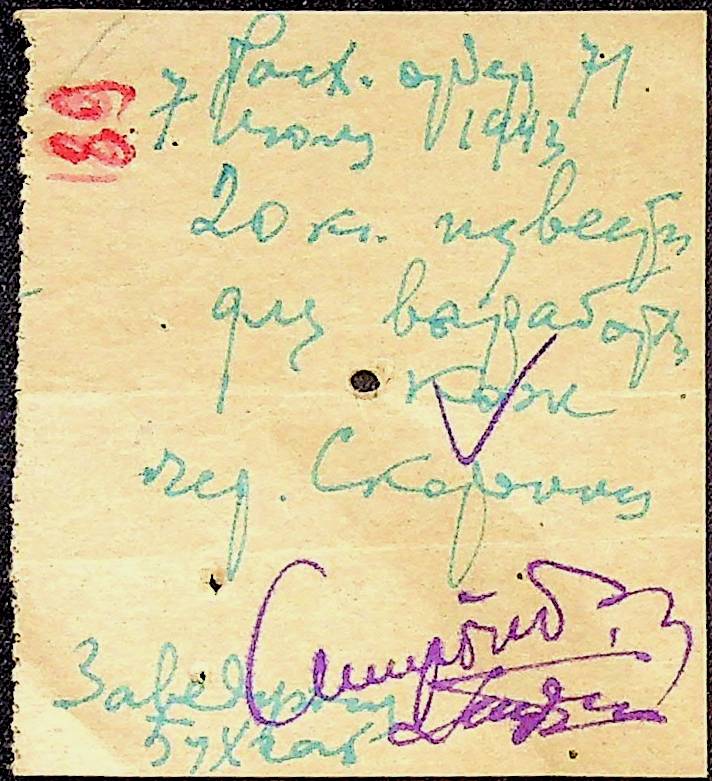 189
Расх. ордер 71
7 июля 1943
20 кг. извести
для выработки
кож
чер. Скорняк
Смирнов
Заведующ
Бухгал